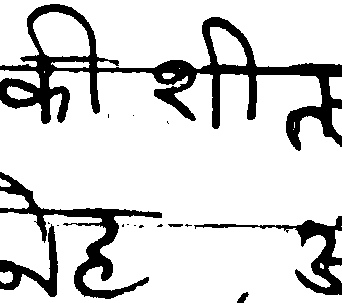 की शीत
नेह